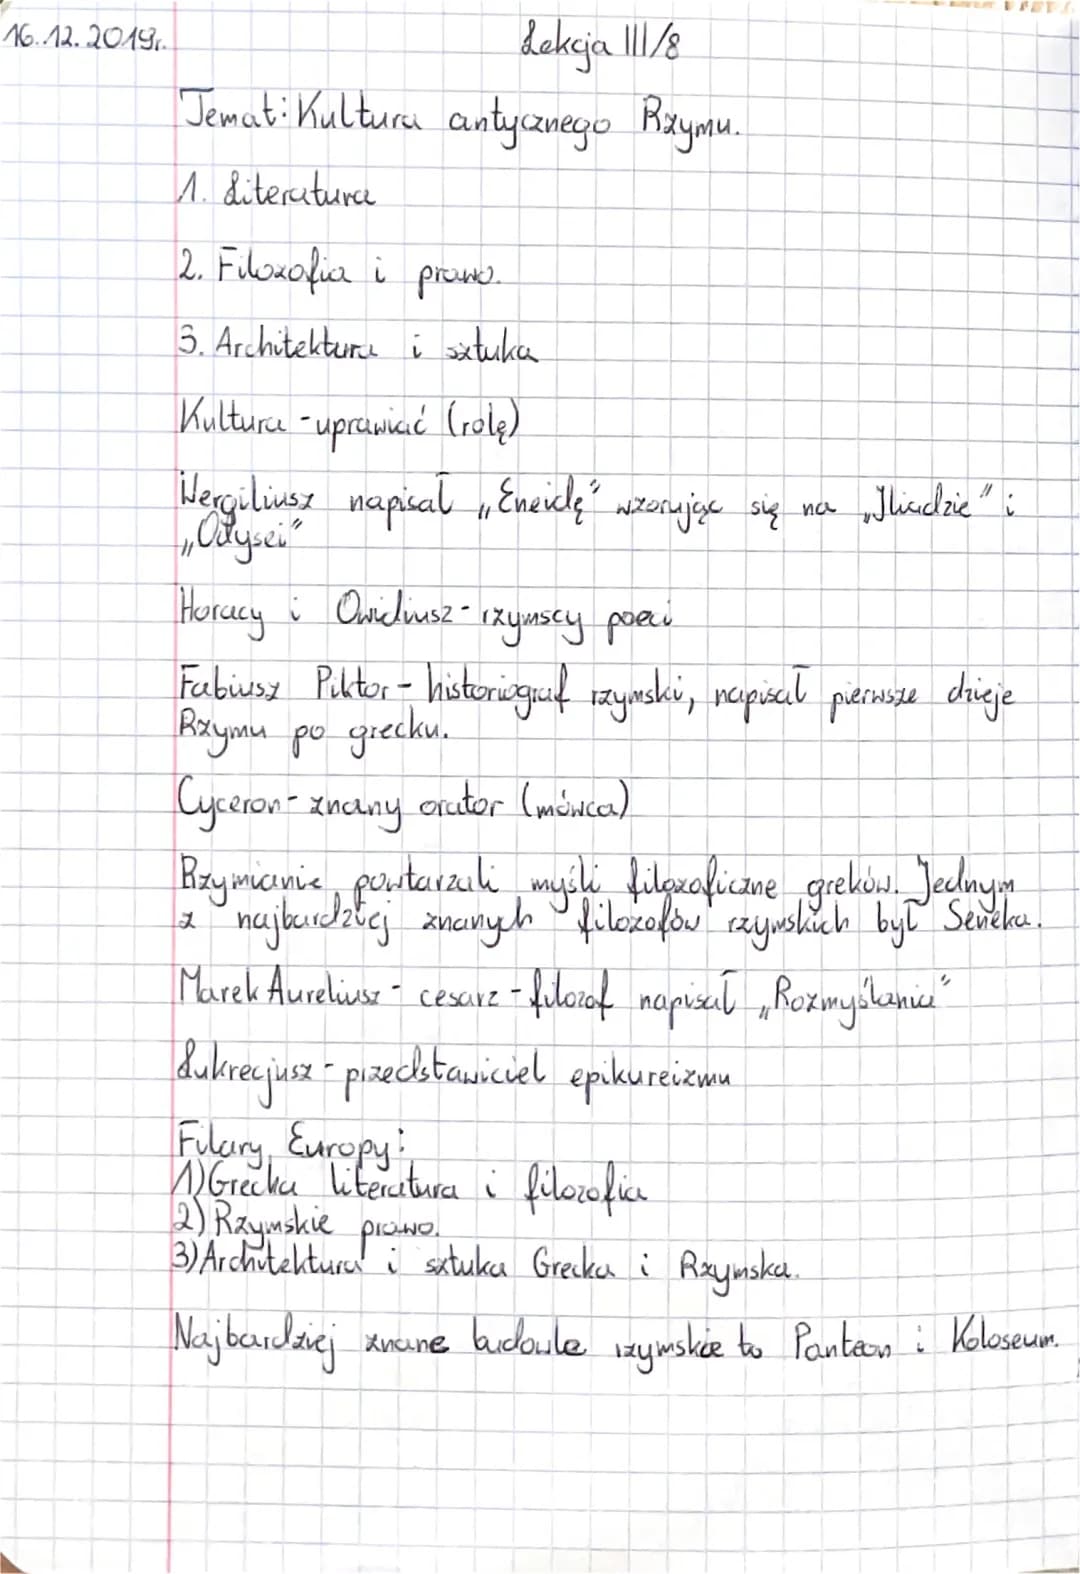 16.12.2019r.
Lekcja III/8
Temat: Kultura antycznego Rzymu.
1. Literatura
2. Filozofia i prawo.
3. Architektura i sztuka
Kultura - uprawiać (rolę)
Wergiliusz napisał „Eneidę" wzorując się na „Iliadzie" i
„Odysei"
Horacy i Owidiusz - rzymscy poeci
Fabiusz Piktor - historiograf rzymski, napisał pierwsze dzieje
Rzymu po grecku.
Cyceron - znany orator (mówca)
Rzymianie powtarzali myśli filozoficzne greków. Jednym
z najbardziej znanych filozofów rzymskich był Seneka.
Marek Aureliusz - cesarz - filozof napisał „Rozmyślania"
Lukrecjusz - przedstawiciel epikureizmu
Filary Europy:
1) Grecka literatura i filozofia
2) Rzymskie prawo.
3) Architektura i sztuka Grecka i Rzymska.
Najbardziej znane budowle rzymskie to Panteon i Koloseum.